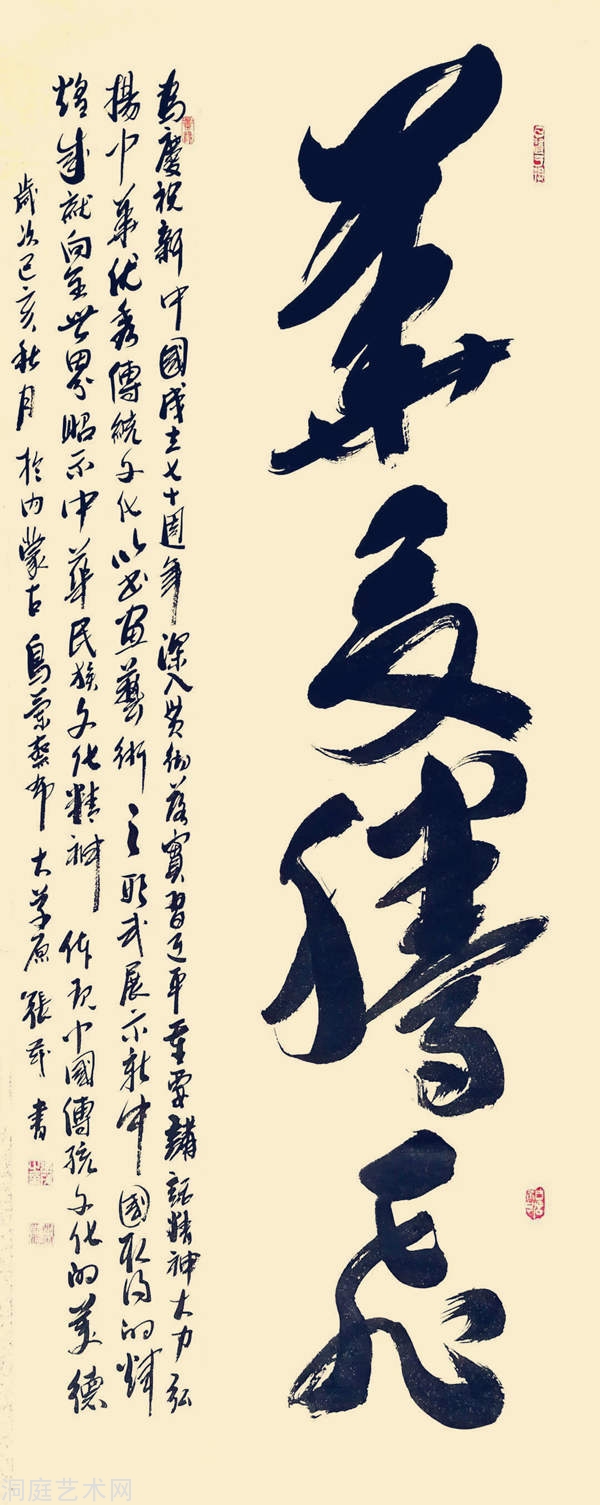 華夏騰飛
為慶祝新中國成立七十週年深入貫徹落實習近平重要講話精神大力弘
揚中華优秀傳統文化以书画藝術之形式展示新中國取得的輝
煌成就向全世界昭示中華民族文化精神体現中國傳統文化的美德
歲次己亥秋月於内蒙古烏蘭察布大草原張書
洞庭艺术网